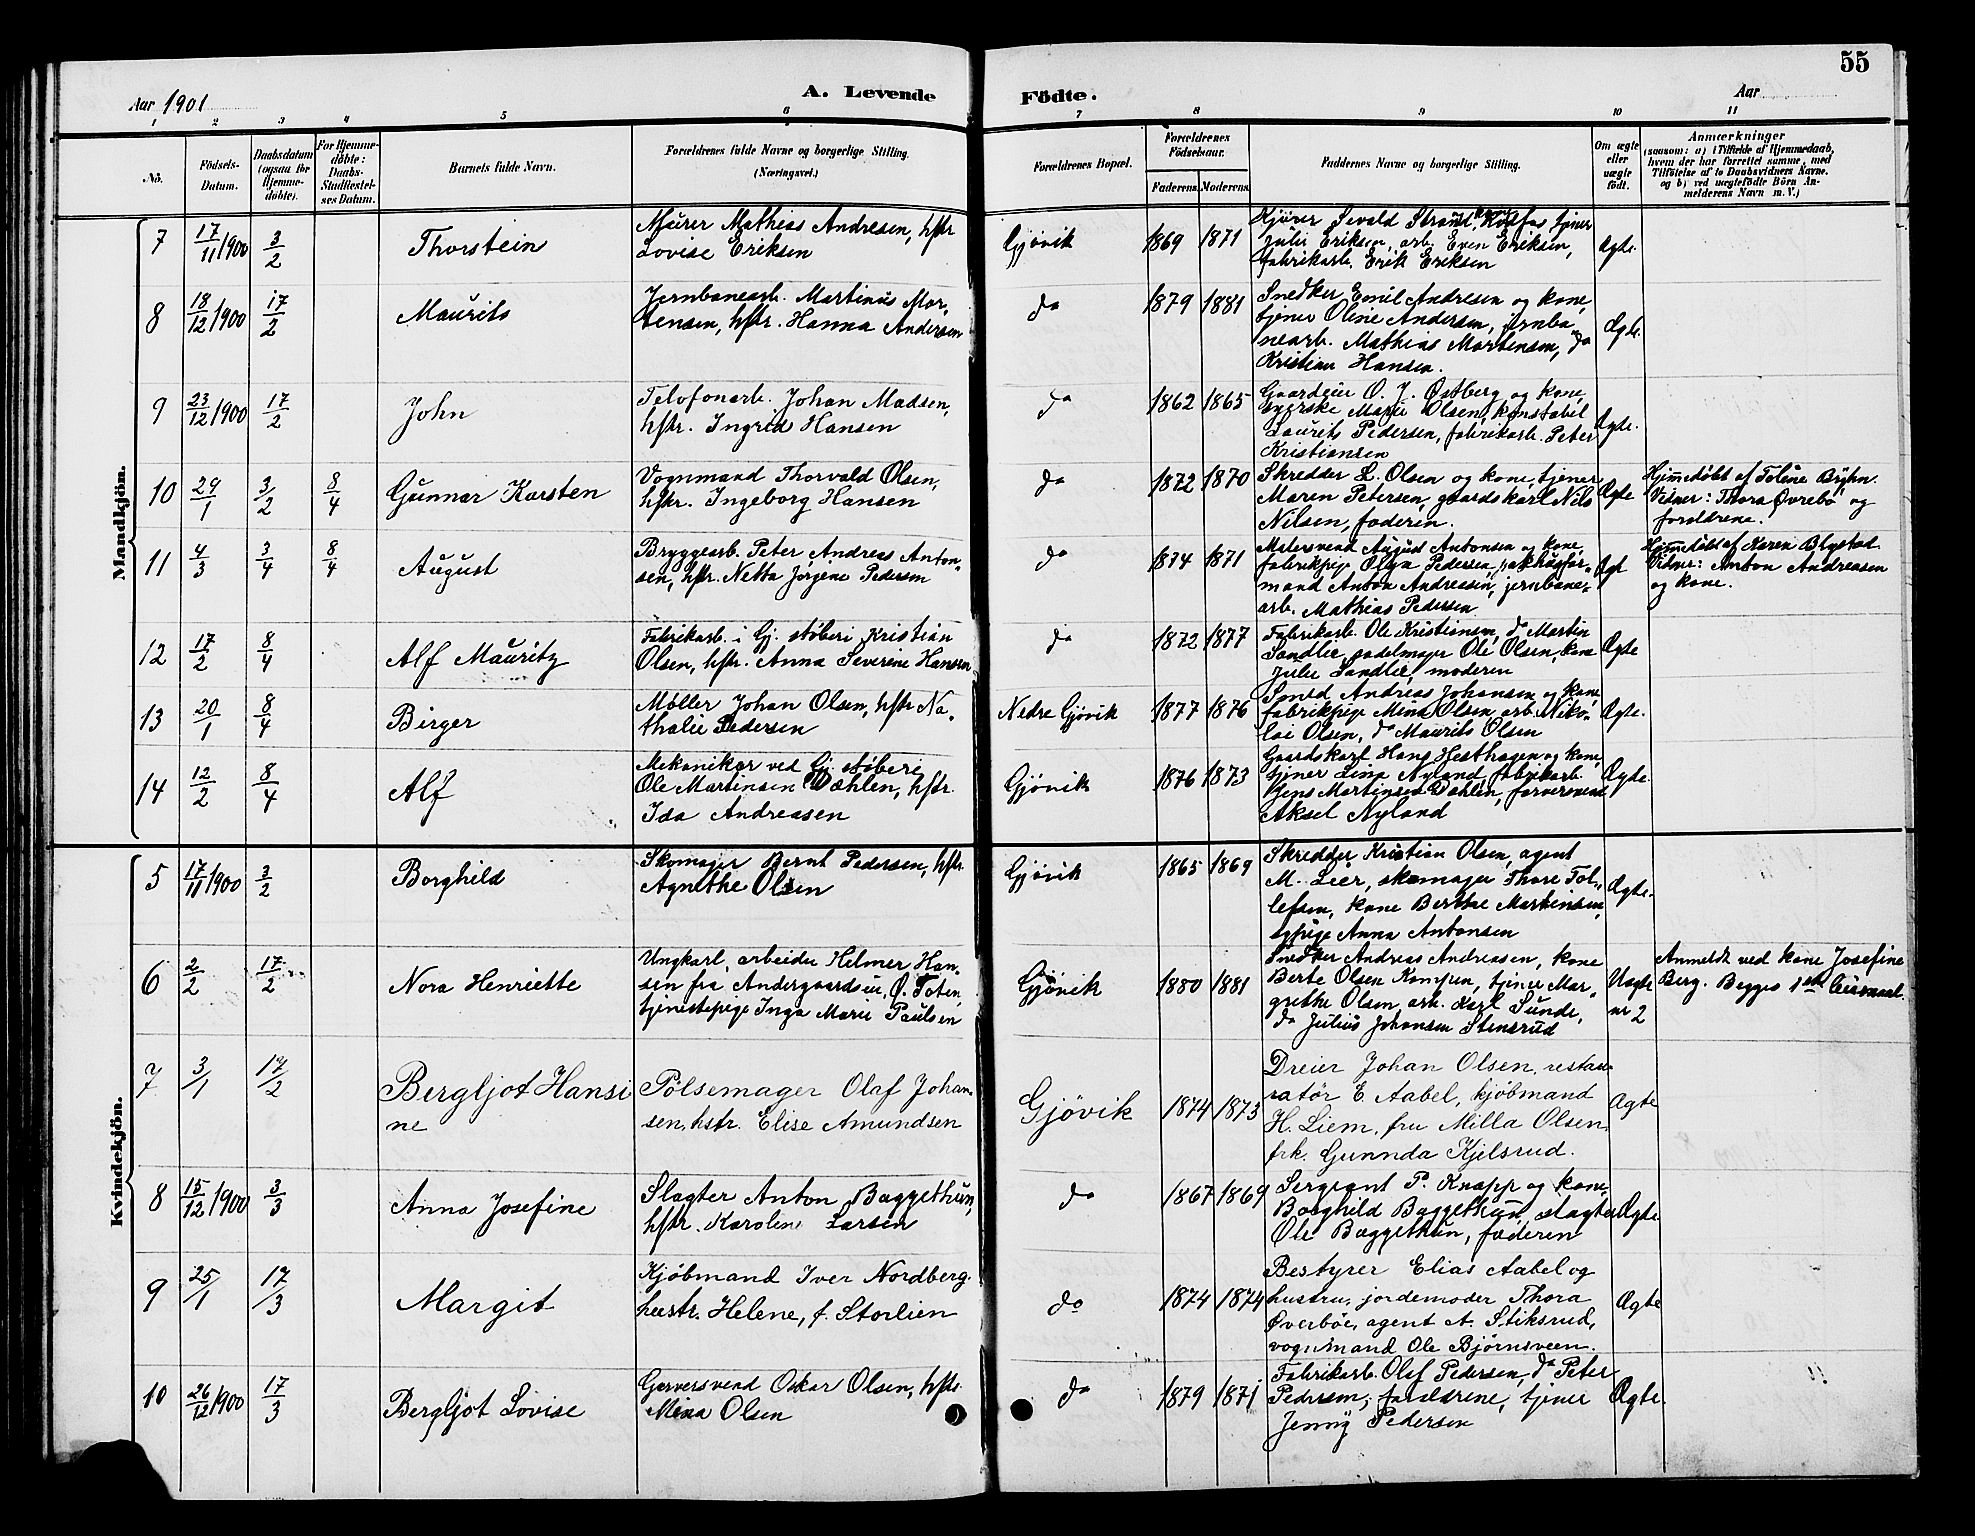 55
Aar 1901
A. Levende
Födte.
Aar
1 2 3 4 5 6 7 8 9 10 11
No.
Födsels-
Datum.
Daabsdatum
(ogsaa for
Hjemme-
döbte).
For Hjemme-
döbte:
Daabs-
Stadfestel-
ses Datum.
Barnets fulde Navn.
Forældrenes fulde Navne og borgerlige Stilling.
(Næringsvei.)
Forældrenes Bopæl.
Forældrenes
Födselsaar.
Faderens. Moderens.
Faddernes Navne og borgerlige Stilling.
Om ægte
eller
uægte
født.
Anmærkninger
(saasom: a) i Tilfælde af Hjemmedaab,
hvem der har forrettet samme, med
Tilföielse af to Daabsvidners Navne.
og b) ved uægtefödte Börn An-
melderens Navn m. V.)
Mandkjön.
7 17/11 1900 3/2
Thorstein
Murer Mathias Andresen, hstr
Lovise Eriksen
Gjøvik
1869 1871
Kjører Sevald Strand, tjener
Julie Eriksen, arb. Even Eriksen,
fabrikarb. Erik Eriksen
Ægte.
8 18/12 1900 17/2
Maurits
Jernbanearb. Martinus Mor-
tensen, hstr. Hanna Andersen
do
1879 1881
Snedker Emil Andresen og kone,
tjener Oline Andersen, jernba-
nearb. Mathias Mortensen, do
Kristian Hansen.
Ægte.
9 23/12 1900 17/2
John
Telefonarb. Johan Madsen,
hstr. Ingrid Hansen
do
1862 1865
Gaardeier O. J. Østberg og kone,
syerske Marie Olsen, konstabel
Laurits Pedersen, fabrikarb. Peter
Kristiansen
Ægte.
10 29/1 3/2 8/4
Gunnar Karsten
Vognmand Thorvald Olsen,
hstr. Ingeborg Hansen
do
1872 1870
Skredder L. Olsen og kone, tjener
Maren Petersen, gaardskarl Nils
Nilsen, faderen.
Ægte
Hjemmedøbt af Toline Bryhn.
Vidner: Thora Øvrebø og
forældrene.
11 4/3 3/4 8/4
August
Bryggearb. Peter Andreas Anton-
sen, hstr. Netta Jørgine Pedersen
do
1874 1871
Malersvend August Antonsen og kone,
fabrikpige Olga Pedersen, pakhusfor-
mand Anton Andreassen, jernbane-
arb. Mathias Pedersen
Ægt
Hjemmedøbt af Karen Blystad.
Vidner: Anton Andreasen
og kone.
12 17/2 8/4
Alf Mauritz
Fabrikarb. i Gj. støberi Kristian
Olsen, hstr. Anna Severine Hansen
do
1872 1877
Fabrikarb. Ole Kristiansen, do Martin
Sandlie, sadelmager Ole Olsen, kone
Julie Sandlie, moderen
Ægte
13 20/1 8/4
Birger
Møller Johan Olsen, hstr Na-
thalie Pedersen
Nedre Gjøvik
1877 1876
Smed Andreas Johansen og kone,
fabrikpige Mina Olsen, arb. Niko-
lai Olsen, do Maurits Olsen
Ægte.
14 12/2 8/4
Alf
Mekaniker ved Gj. støberi
Ole Martinsen Dæhlen, hstr.
Ida Andreasen
Gjøvik
1876 1873
Gaardskarl Hans Hesthagen og kone,
tjener Lina Nyland, fabrikarb.
Jens Martinsen Dæhlen, farversvend
Aksel Nyland
Ægte.
Kvindekjön.
5 17/11 1900 3/2
Borghild
Skomager Bernt Pedersen, hstr.
Agnethe Olsen
Gjøvik
1865 1869
Skredder Kristian Olsen, agent
M. Lier, skomager Thore Tol-
lefsen, kone Berthe Martinsen,
sypige Anna Antonsen
Ægte.
6 2/2 17/2
Nora Henriette
Ungkarl, arbeider Helmer Han-
sen fra Andergaardseie, Ø. Toten,
tjenestepige Inga Marie Paulsen
Gjøvik
1880 1881
Snedker Andreas Andreasen, kone
Berte Olsen Kampen, tjener Mar-
grethe Olsen, arb. Karl Sunde,
do Julius Johansen Stensrud
Uægte
nr 2
Anmeldt ved kone Josefine
Berg. Begges 1ste Leiermaal.
7 3/1 17/2
Bergljot Hansi
ne
Pölsemager Olaf Johan-
sen, hstr. Elise Amundsen
Gjövik
1874 1873
Dreier Johan Olsen, restau-
ratör E. Aabel, kjöbmand
H. Liem, fru Milla Olsen,
frk. Gunnda Kjelsrud.
Ægte
8 15/12 1900 3/3
Anna Josefine
Slagter Anton Baggethun,
hstr. Karoline Larsen
do
1867 1869
Sergeant P. Knapp og kone,
Borghild Baggethun, slagter
Ole Baggethun, faderen
Ægte.
9 25/1 17/3
Margit
Kjöbmand Iver Nordberg,
hustr. Helene, f. Storlien
do
1874 1874
Bestyrer Elias Aabel og
hustru, jordemoder Thora
Øverböe, agent A. Stiksrud,
vognmand Ole Björnsveen.
Ægte
10 26/12 1900 17/3
Bergljot Lovise
Garversvend Oskar Olsen, hstr.
Mina Olsen
do
1879 1871
Fabrikarb. Olaf Pedersen, do Peter
Pedersen, forældrene, tjener
Jenny Pedersen
Ægte.